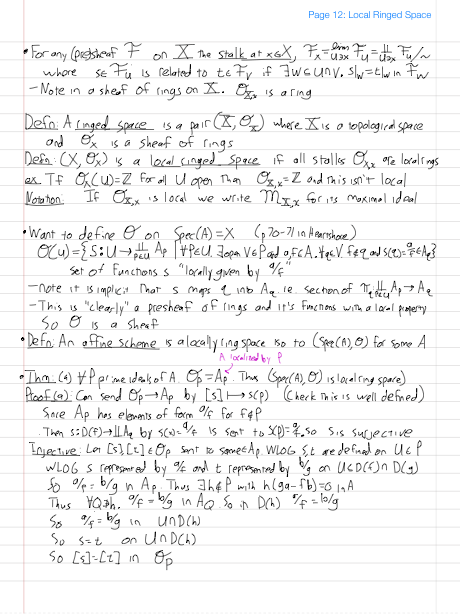 Page 12: Local Ringed Space
• For any (pre)sheaf F on X the stalk at x∈X, F_x = lim_{U∋x} F_U = ∐_{U∋x} F_U/~
where s∈F_U is related to t∈F_V if ∃W⊆U∩V. s|_W = t|_W in F_W
- Note in a sheaf of rings on X. O_{X,x} is a ring
Defn: A ringed space is a pair (X, O_X) where X is a topological space
and O_X is a sheaf of rings
Defn: (X, O_X) is a local ringed space if all stalks O_{X,x} are local rings
ex. If O_X(U)=Z for all U open than O_{X,x}=Z and this isn't local
Notation: If O_{X,x} is local we write M_{X,x} for its maximal ideal
• Want to define O on Spec(A)=X (p70-71 in Hartshorne)
O(U)={S:U→∐_{P∈U} A_P | ∀P∈U, ∃open V∋P and a,f∈A. ∀q∈V f∉q and s(q)=a/f∈A_q}
set of functions s "locally given by a/f"
- note it is implicit that s maps q into A_q ie. section of π:∐_{q∈U} A_P → A_q
- This is "clearly" a presheaf of rings and it's functions with a local property
So O is a sheaf
• Defn: An affine scheme is a locally ring space iso to (Spec(A), O) for some A
A localized by P
• Thm: (a) ∀P prime ideals of A O_P = A_P. Thus (Spec(A), O) is local ring space)
Proof(a): Can send O_P→A_P by [s]↦s(p) (Check this is well defined)
Since A_P has elements of form a/f for f∉P
Then s:D(f)→∐A_q by s(x)=a/f is sent to s(p)=a/f. so S is surjective
Injective: Let [s],[t]∈O_P sent to same∈A_P. WLOG s,t are defined on U∈P
WLOG s represented by a/f and t represented by b/g on U⊆D(f)∩D(g)
So a/f = b/g in A_P. Thus ∃h∉P with h(ga-fb)=0 in A
Thus ∀Q∌h. a/f = b/g in A_Q. So in D(h) a/f = b/g
So a/f = b/g in U∩D(h)
So s=t on U∩D(h)
So [s]=[t] in O_P